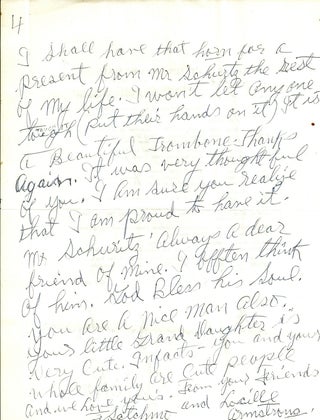 4
I shall have that horn for a
present from Mr Schuritz the rest
of my life. I won't let anyone
touch (put their hands on it) It is
a Beautiful Trombone. Thanks
Again. It was very thoughtful
of you. I am sure you realize
that I am proud to have it.
Mr Schuritz Always a dear
friend of mine. I offten think
of him. God Bless his Soul.
You are A nice man Also.
Your little Grand Daughter is
very cute. Infacts - you and your
whole family are cute people
And we love yours. From your Friends
Satchmo and Lucille
Armstrong